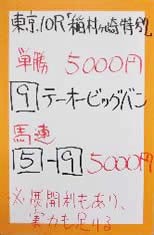 東京10R「稲村ヶ崎特別」
単勝 5000円
9 テーオービッグバン
馬連
5-9 5000円
※展開利もあり、
実力も足りる